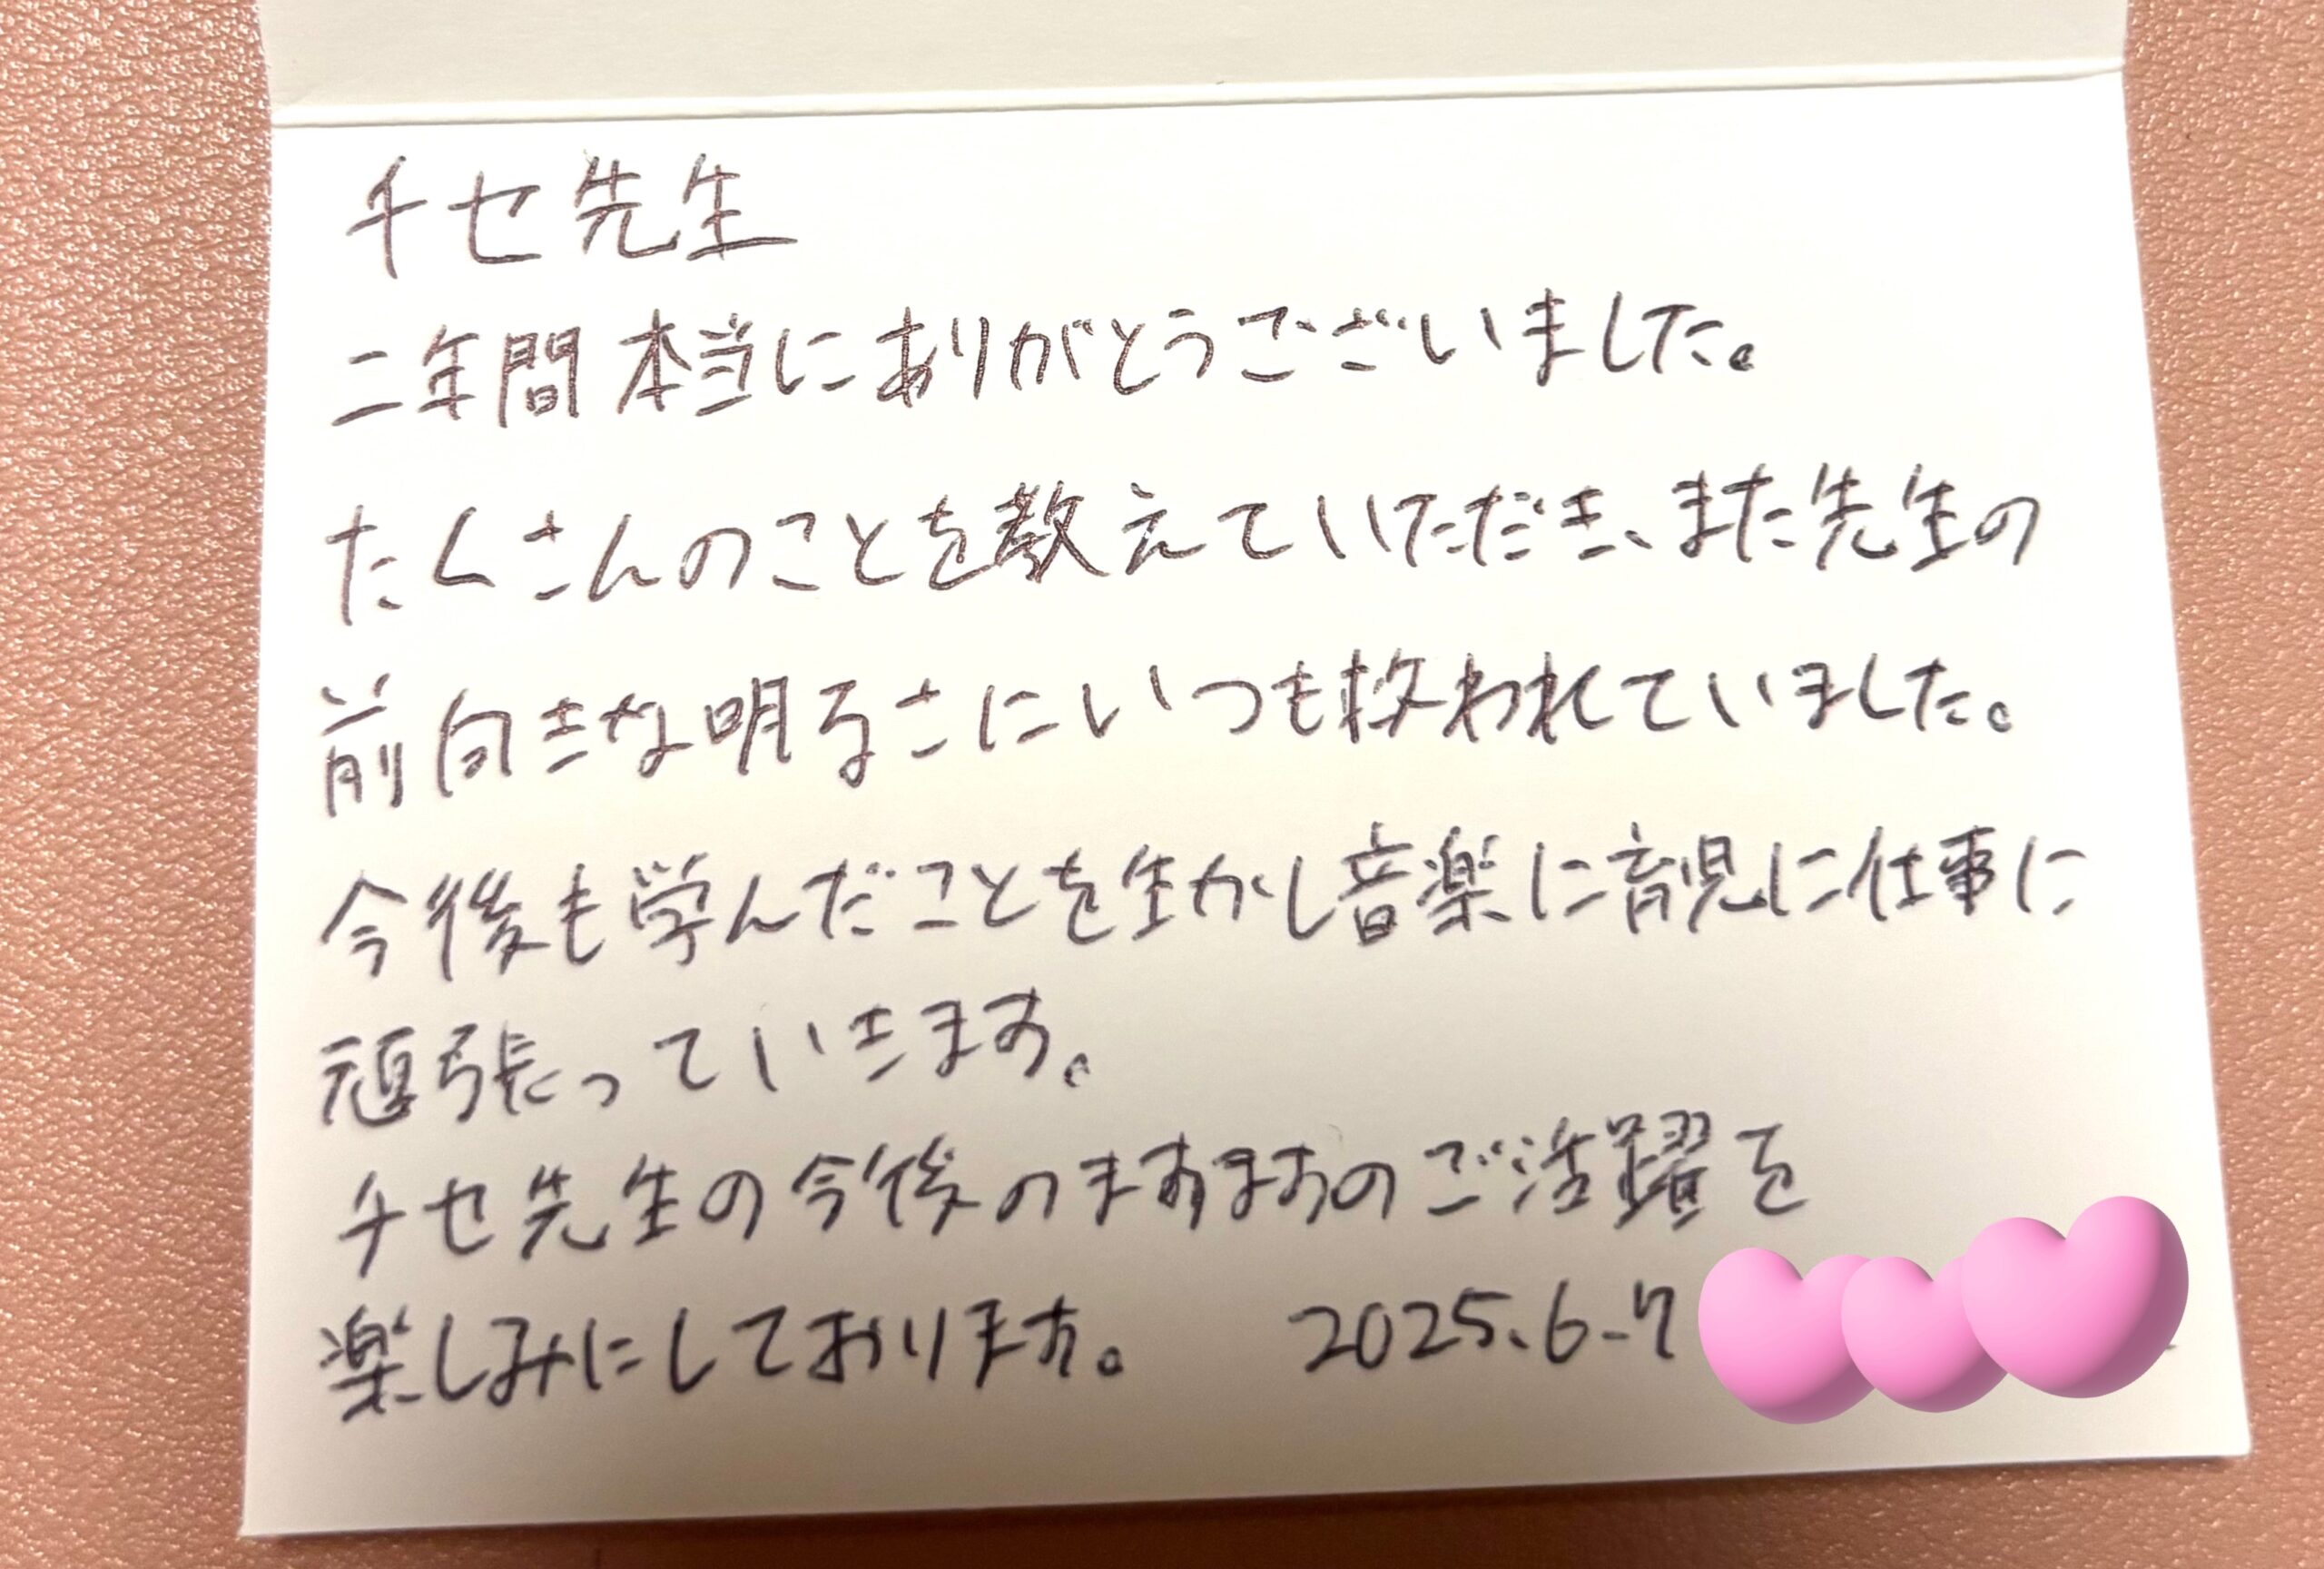 チセ先生
二年間本当にありがとうございました。
たくさんのことを教えていただき、また先生の
前向きな明るさにいつも救われていました。
今後も学んだことを生かし音楽に育児に仕事に
頑張っていきます。
チセ先生の今後のますますのご活躍を
楽しみにしております。 2025.6.7